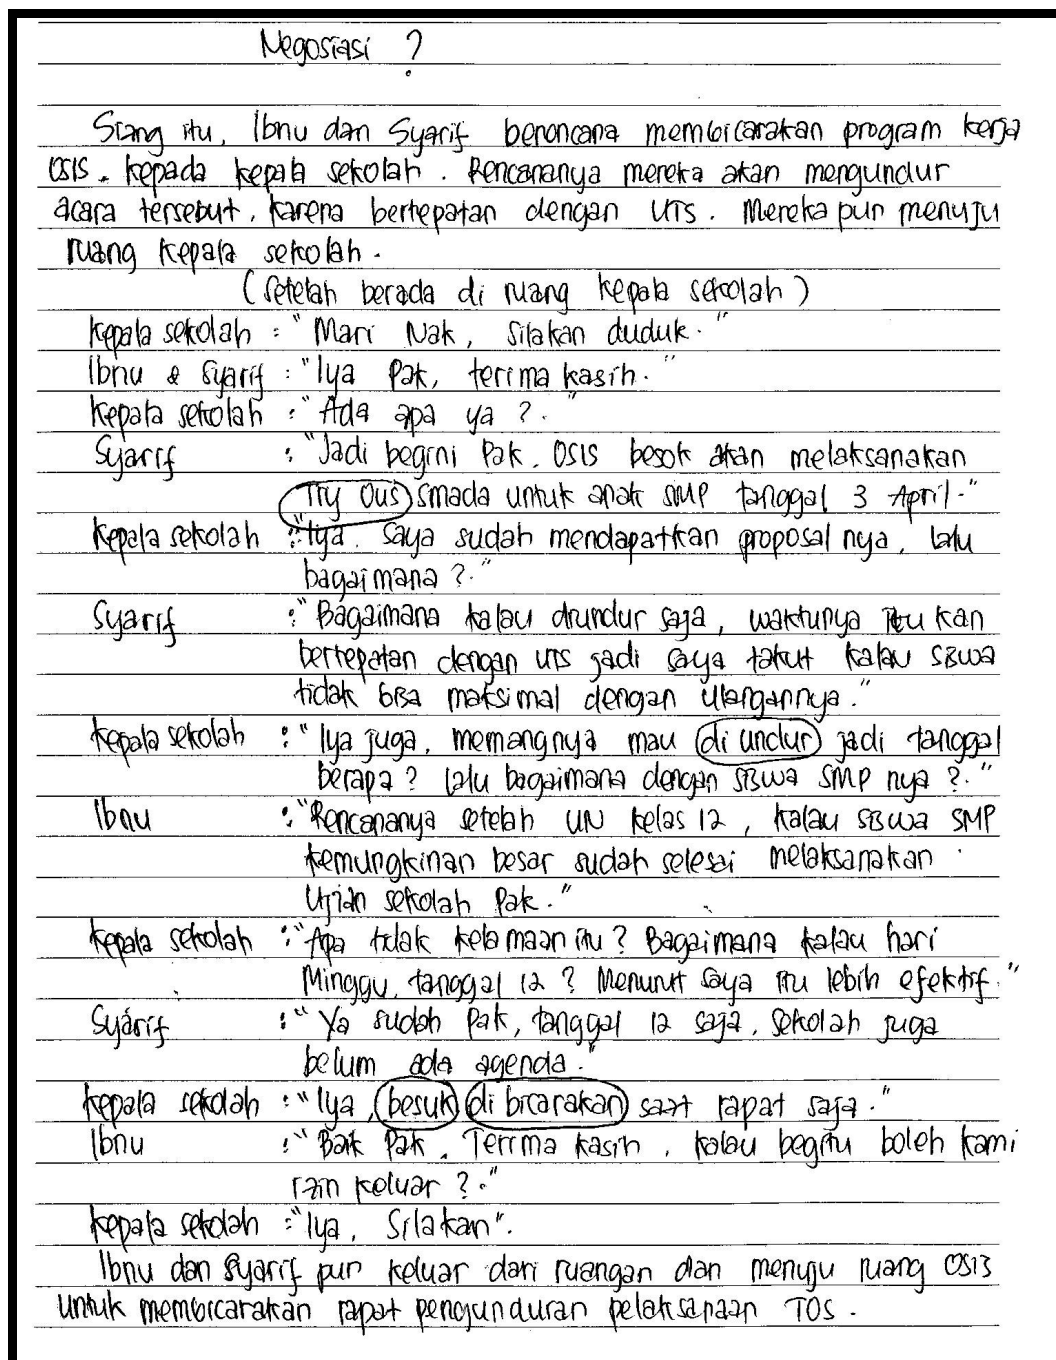 Negosiasi ?
Siang itu, Ibnu dan Syarif berencana membicarakan program kerja
OSIS. kepada kepala sekolah. Rencananya mereka akan mengundur
acara tersebut, karena bertepatan dengan UTS. Mereka pun menuju
ruang kepala sekolah.
(Setelah berada di ruang kepala sekolah)
Kepala sekolah : "Mari Nak, silakan duduk."
Ibnu & Syarif : "Iya Pak, terima kasih."
Kepala sekolah : "Ada apa ya ?."
Syarif : "Jadi begini Pak. OSIS besok akan melaksanakan
Try Ous Smada untuk anak SMP tanggal 3 April."
Kepala sekolah : "Iya. Saya sudah mendapatkan proposal nya, lalu
bagaimana ?."
Syarif : "Bagaimana kalau diundur saja, waktunya itu kan
bertepatan dengan UTS jadi saya takut kalau siswa
tidak bisa maksimal dengan ulangannya."
Kepala sekolah : "Iya juga, memangnya mau di undur jadi tanggal
berapa ? Lalu bagaimana dengan siswa SMP nya ?."
Ibnu : "Rencananya setelah UN kelas 12, kalau siswa SMP
kemungkinan besar sudah selesai melaksanakan
Ujian sekolah Pak."
Kepala sekolah : "Apa tidak kelamaan itu ? Bagaimana kalau hari
Minggu, tanggal 12 ? Menurut saya itu lebih efektif."
Syarif : "Ya sudah Pak, tanggal 12 saja, sekolah juga
belum ada agenda."
Kepala sekolah : "Iya, besuk di bicarakan saat rapat saja."
Ibnu : "Baik Pak. Terima kasih, kalau begitu boleh kami
izin keluar ?."
Kepala sekolah : "Iya, Silakan".
Ibnu dan Syarif pun keluar dari ruangan dan menuju ruang OSIS
untuk membicarakan rapat pengunduran pelaksanaan TOS.